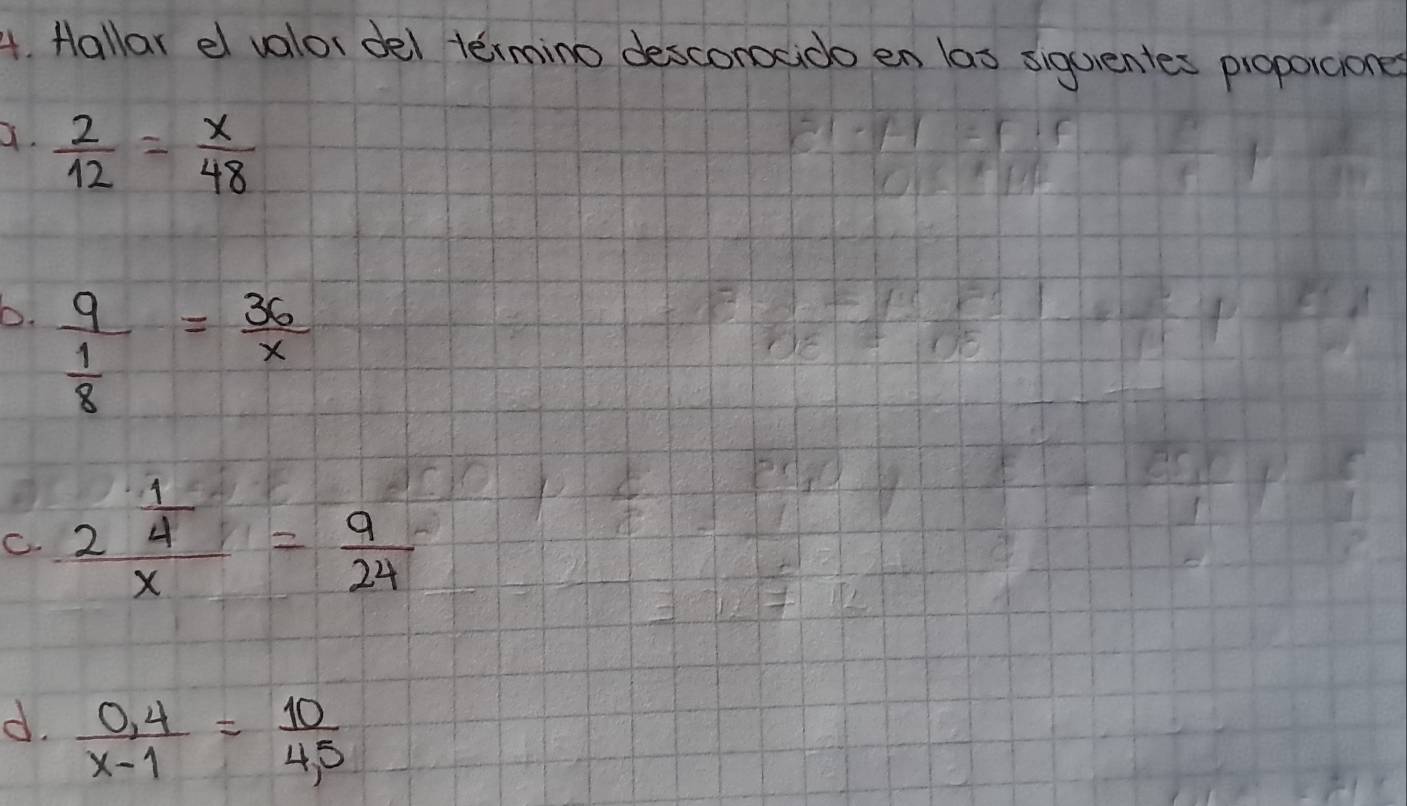 4. Hallar el valor del término desconocido en las siguientes proporciones
a. 2/12 = x/48
b. 9/(1/8) = 36/x
c. 2 1/4 / x = 9/24
d. 0,4/(x-1) = 10/4,5